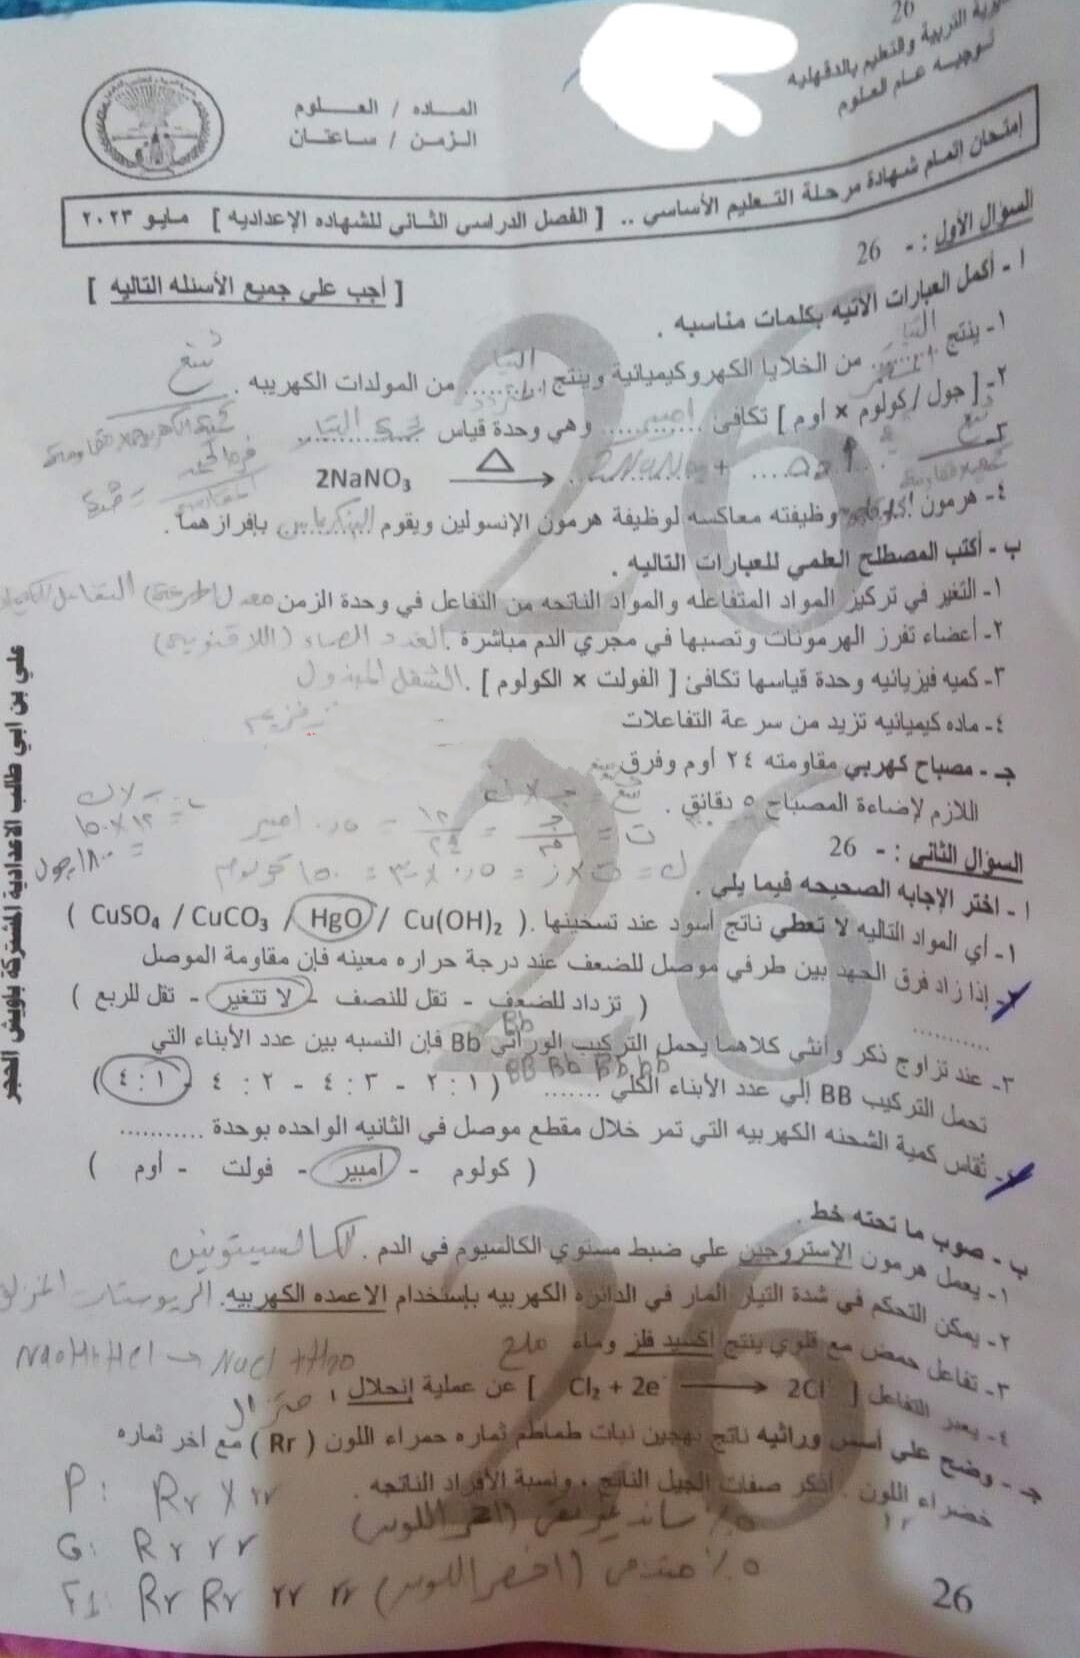 26
مديرية التربية والتعليم بالدقهليه
توجيه عام العلوم
الماده / العلوم
الزمن / ساعتان
إمتحان إتمام شهادة مرحلة التعليم الأساسي .. [ الفصل الدراسي الثاني للشهاده الإعداديه ] مايو ٢٠٢٣
[ أجب علي جميع الأسئله التاليه ]
السؤال الأول : - 26
ا - أكمل العبارات الآتيه بكلمات مناسبه .
١- ينتج التيار المستمر من الخلايا الكهروكيميائية وينتج التيار المتردد من المولدات الكهربيه .
٢- [ جول / كولوم × أوم ] تكافئ امبير وهي وحدة قياس شدة التيار
٣- 2NaNO₃ △ → 2NaNO₂ + O₂ ↑
٤- هرمون وظيفته معاكسه لوظيفة هرمون الإنسولين ويقوم البنكرياس بإفرازهما .
ب - أكتب المصطلح العلمي للعبارات التاليه .
١- التغير في تركيز المواد المتفاعله والمواد الناتجه من التفاعل في وحدة الزمن معدل (سرعة) التفاعل الكيميائي
٢- أعضاء تفرز الهرمونات وتصبها في مجري الدم مباشرة . الغدد الصماء (اللاقنوية)
٣- كميه فيزيائيه وحدة قياسها تكافئ [ الفولت × الكولوم ] . الشغل المبذول
٤- ماده كيميائيه تزيد من سرعة التفاعلات
جـ - مصباح كهربي مقاومته ٢٤ أوم وفرق
اللازم لإضاءة المصباح ٥ دقائق .
ت = جـ / م = ١٢ / ٢٤ = ٠,٥ امبير
ك = ت × ز = ٠,٥ × ٣٠٠ = ١٥٠ كولوم
١٥٠ × ١٢
= ١٨٠٠ جول
السؤال الثاني : - 26
ا - اختر الإجابه الصحيحه فيما يلي .
١- أي المواد التاليه لا تعطي ناتج أسود عند تسخينها . ( CuSO₄ / CuCO₃ / HgO / Cu(OH)₂ )
٢- إذا زاد فرق الجهد بين طرفي موصل للضعف عند درجة حراره معينه فإن مقاومة الموصل
.......... ( تزداد للضعف - تقل للنصف - لا تتغير - تقل للربع )
٣- عند تزاوج ذكر وأنثي كلاهما يحمل التركيب الوراثي Bb فإن النسبه بين عدد الأبناء التي
BB Bb Bb bb
تحمل التركيب BB إلي عدد الأبناء الكلي ....... ( ١ : ٢ - ٣ : ٤ - ٢ : ٤ - ١ : ٤ )
٤- تُقاس كمية الشحنه الكهربيه التي تمر خلال مقطع موصل في الثانيه الواحده بوحدة ..........
( كولوم - أمبير - فولت - أوم )
ب - صوب ما تحته خط .
١- يعمل هرمون الإستروجين علي ضبط مستوي الكالسيوم في الدم . الكالسيتونين
٢- يمكن التحكم في شدة التيار المار في الدائره الكهربيه بإستخدام الأعمده الكهربيه . الريوستات المنزلق
٣- تفاعل حمض مع قلوي ينتج أكسيد فلز وماء ملح
NaOH + HCl → NaCl + H₂O
٤- يعبر التفاعل [ Cl₂ + 2e⁻ → 2Cl⁻ ] عن عملية إنحلال اختزال
جـ - وضح علي أسس وراثيه ناتج تهجين نبات طماطم ثماره حمراء اللون ( Rr ) مع آخر ثماره
خضراء اللون . أذكر صفات الجيل الناتج ، ونسبة الأفراد الناتجه .
rr
P: Rr X rr
G: R r r r
F1: Rr Rr rr rr
٥٠٪ سائد (احمر اللون)
٥٠٪ متنحي (اخضر اللون)
26
علي بن أبي طالب الاعدادية المشتركة بأويش الحجر